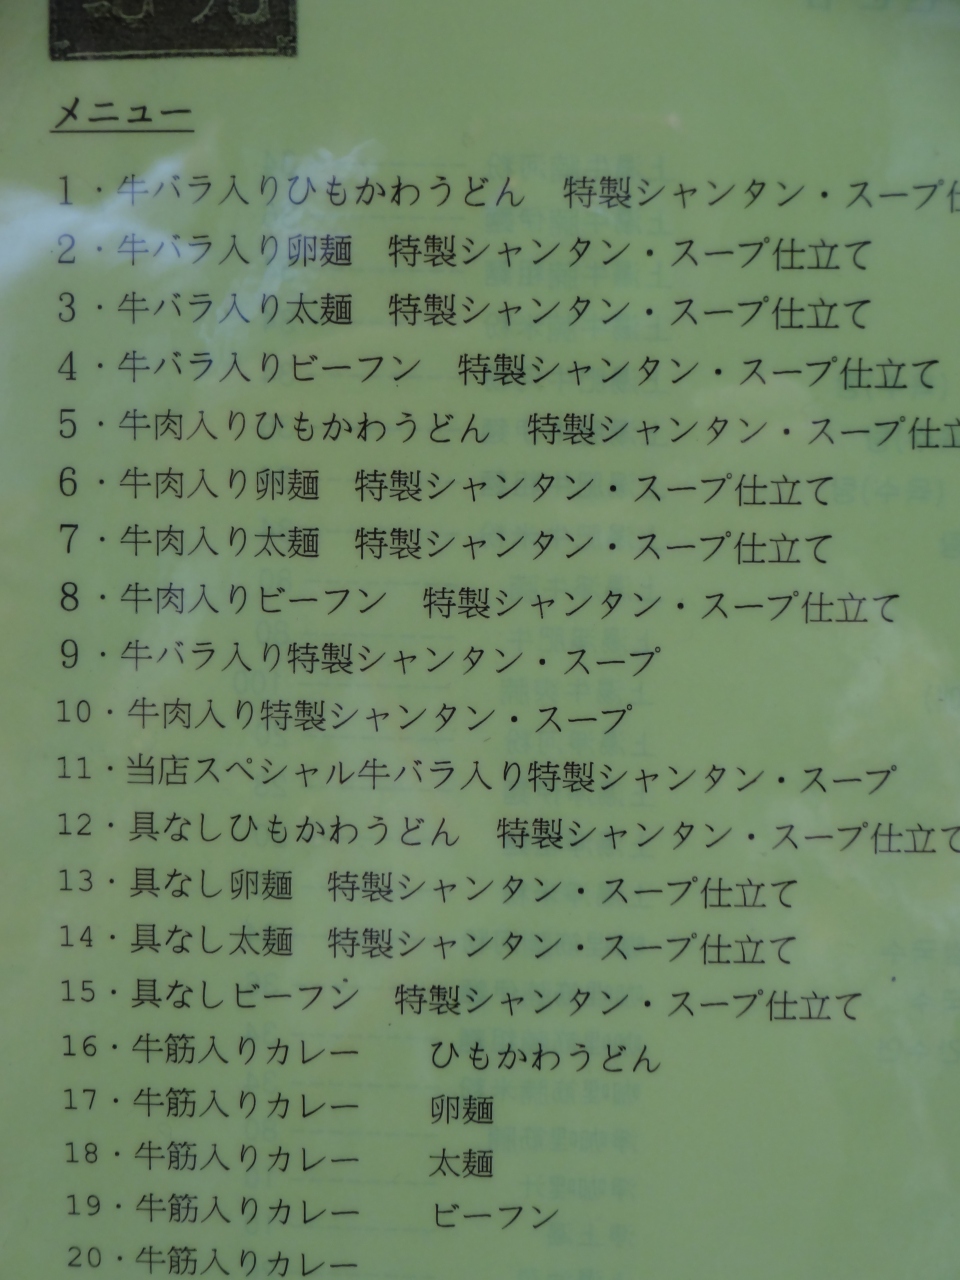 メニュー
1・牛バラ入りひもかわうどん　特製シャンタン・スープ仕
2・牛バラ入り卵麺　特製シャンタン・スープ仕立て
3・牛バラ入り太麺　特製シャンタン・スープ仕立て
4・牛バラ入りビーフン　特製シャンタン・スープ仕立て
5・牛肉入りひもかわうどん　特製シャンタン・スープ仕立
6・牛肉入り卵麺　特製シャンタン・スープ仕立て
7・牛肉入り太麺　特製シャンタン・スープ仕立て
8・牛肉入りビーフン　特製シャンタン・スープ仕立て
9・牛バラ入り特製シャンタン・スープ
10・牛肉入り特製シャンタン・スープ
11・当店スペシャル牛バラ入り特製シャンタン・スープ
12・具なしひもかわうどん　特製シャンタン・スープ仕立て
13・具なし卵麺　特製シャンタン・スープ仕立て
14・具なし太麺　特製シャンタン・スープ仕立て
15・具なしビーフン　特製シャンタン・スープ仕立て
16・牛筋入りカレー　ひもかわうどん
17・牛筋入りカレー　卵麺
18・牛筋入りカレー　太麺
19・牛筋入りカレー　ビーフン
20・牛筋入りカレー